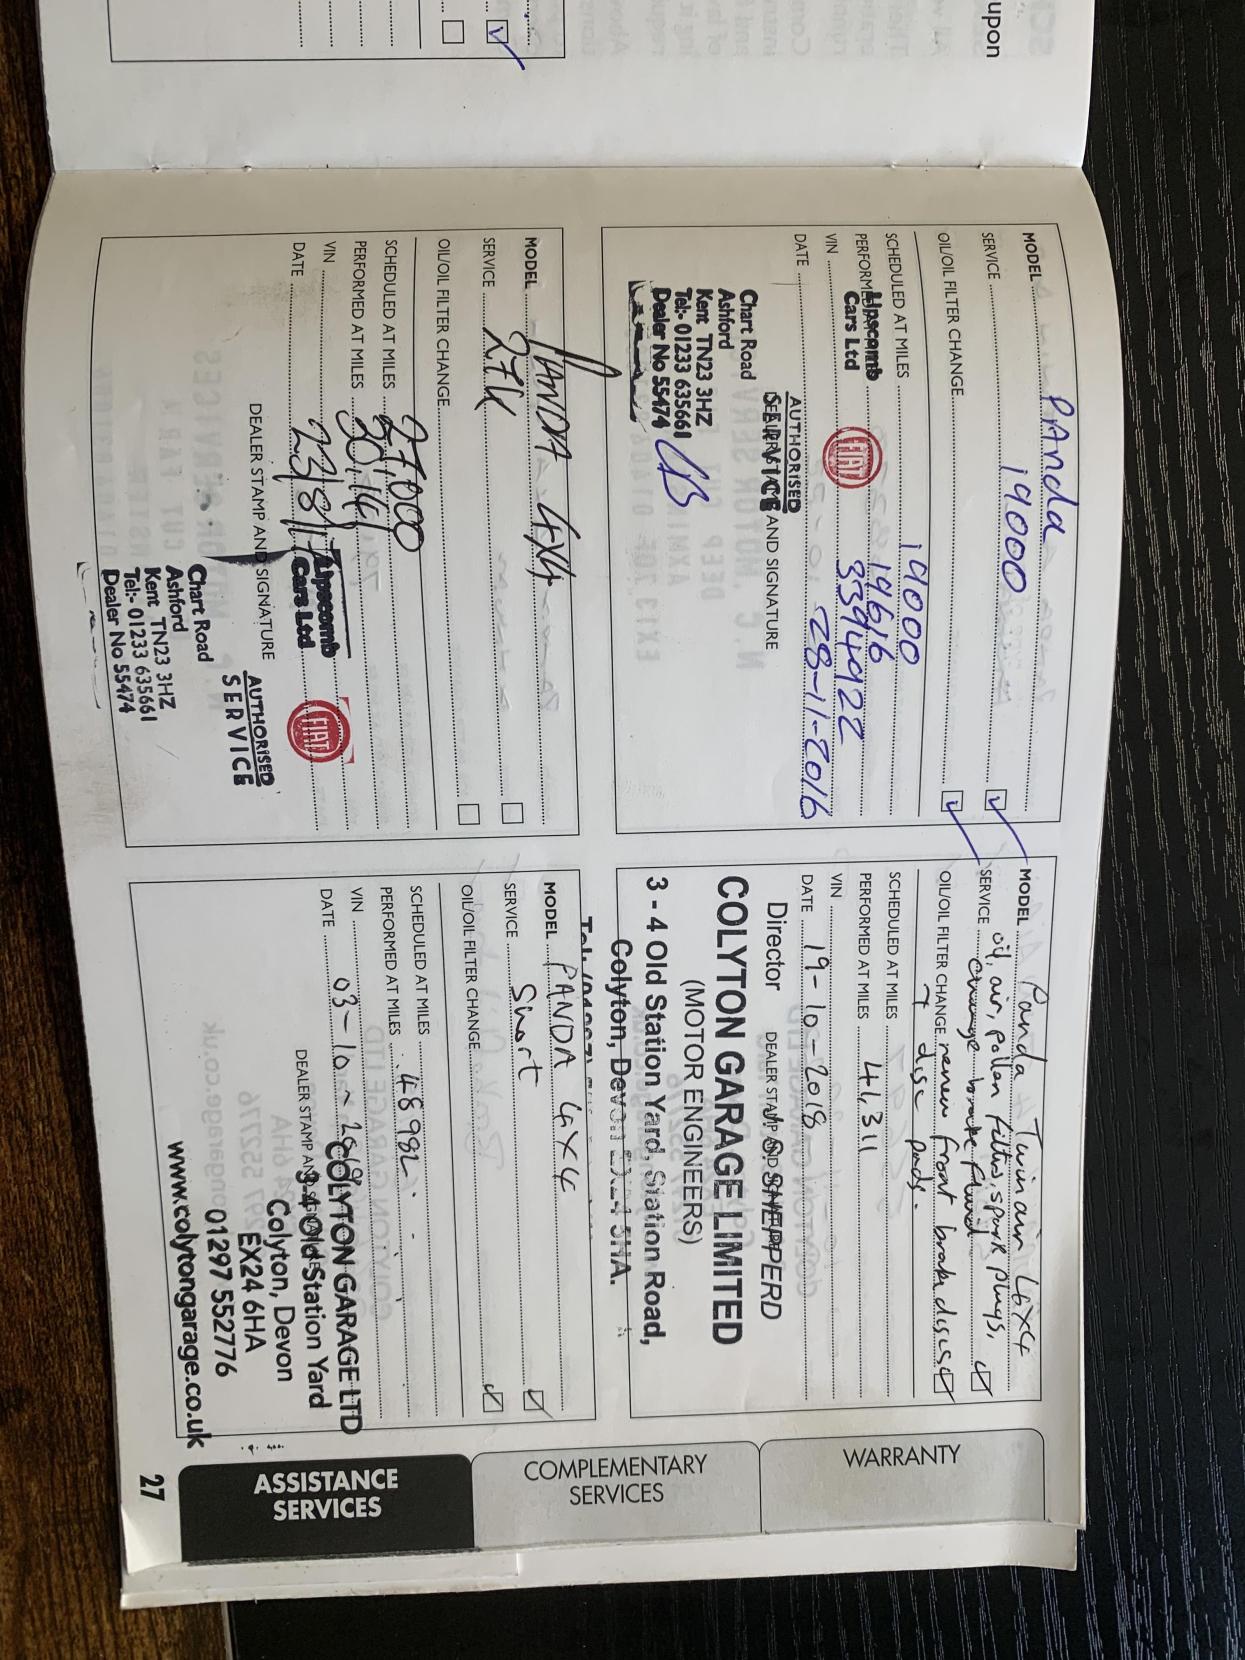 upon
MODEL PANDA
SERVICE 19000
OIL/OIL FILTER CHANGE
SCHEDULED AT MILES 19000
PERFORMED AT MILES 19616
VIN 3394922
DATE 28-11-2016
Lipscomb
Cars Ltd
FIAT
AUTHORISED
SERVICE
DEALER STAMP AND SIGNATURE
Chart Road
Ashford
Kent TN23 3HZ
Tel:- 01233 635661
Dealer No 55474
MODEL Panda Twinair 4x4
SERVICE oil, air, pollen filters, spark plugs,
change brake fluid
OIL/OIL FILTER CHANGE renew front brake discs
+ disc pads.
SCHEDULED AT MILES
PERFORMED AT MILES 41,311
VIN
DATE 19-10-2018
DEALER STAMP AND SIGNATURE
Director S. SHEPPERD
COLYTON GARAGE LIMITED
(MOTOR ENGINEERS)
3 - 4 Old Station Yard, Station Road,
Colyton, Devon EX24 5HA.
MODEL PANDA 4X4
SERVICE 27K
OIL/OIL FILTER CHANGE
SCHEDULED AT MILES 27000
PERFORMED AT MILES 30,141
VIN
DATE 23/8/17
DEALER STAMP AND SIGNATURE
Lipscomb
Cars Ltd
FIAT
AUTHORISED
SERVICE
Chart Road
Ashford
Kent TN23 3HZ
Tel:- 01233 635661
Dealer No 55474
MODEL PANDA 4X4
SERVICE Short
OIL/OIL FILTER CHANGE
SCHEDULED AT MILES
PERFORMED AT MILES 48982
VIN
DATE 03-10-2019
DEALER STAMP AND SIGNATURE
COLYTON GARAGE LTD
3-4 Old Station Yard
Colyton, Devon
EX24 6HA
01297 552776
www.colytongarage.co.uk
WARRANTY
COMPLEMENTARY
SERVICES
ASSISTANCE
SERVICES
27